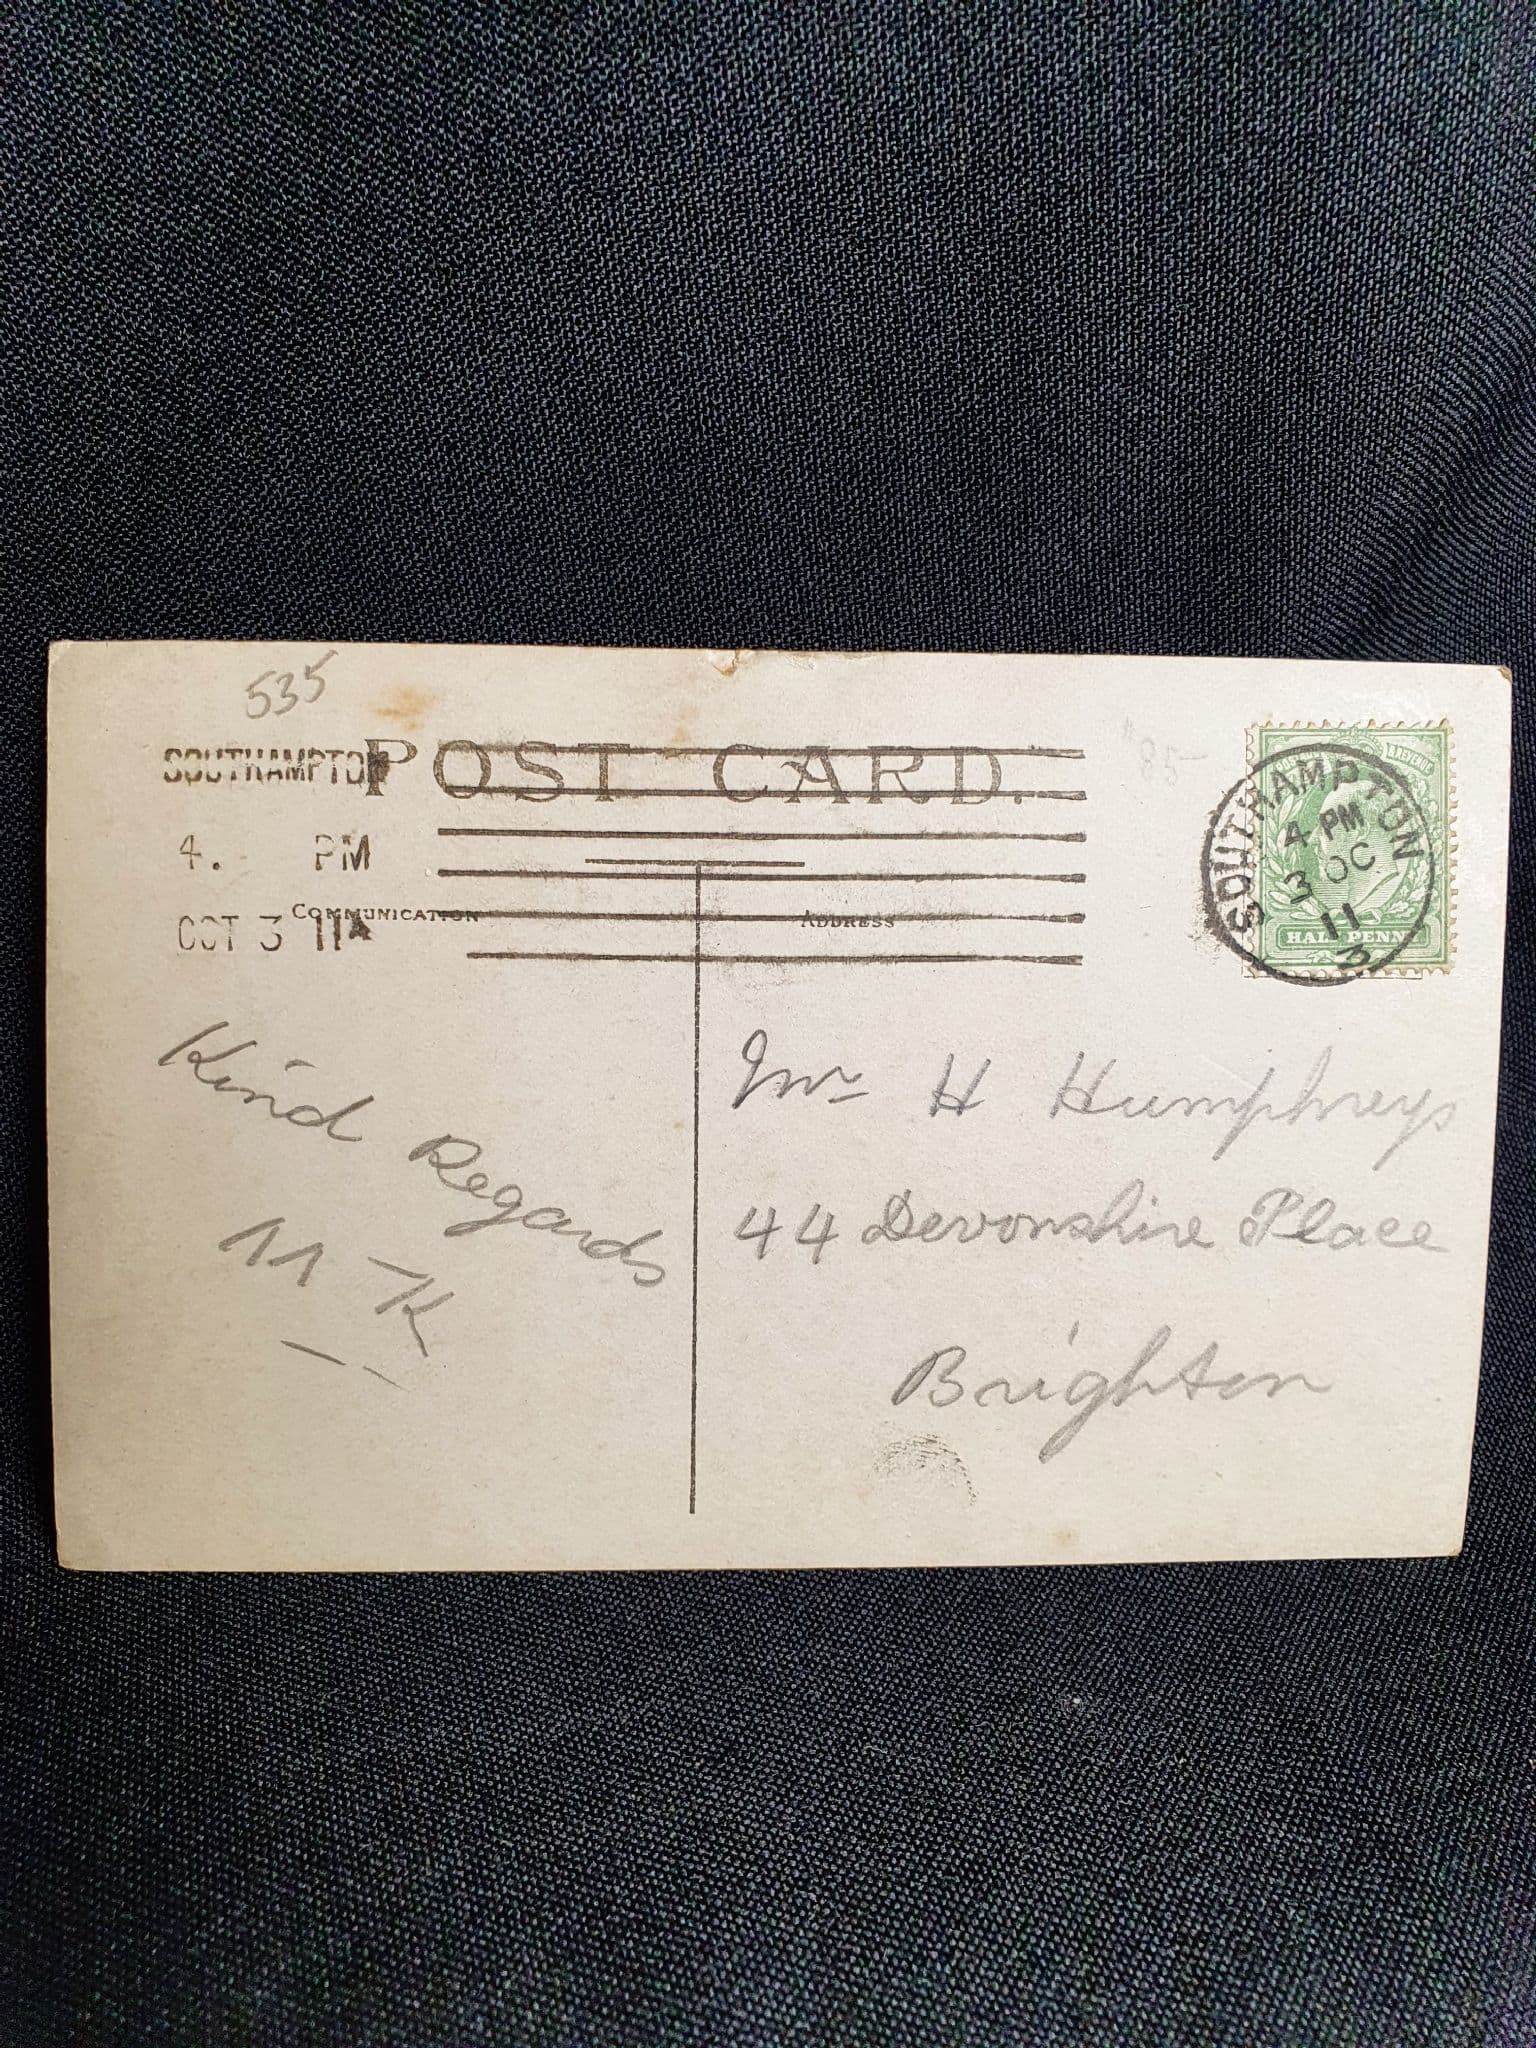 535
SOUTHAMPTON
POST CARD.
$85-
4. PM
OCT 3 11A
COMMUNICATION
ADDRESS
POSTAGE & REVENUE
SOUTHAMPTON
4 PM
3 OC
11
3
HALF PENNY
Kind Regards
M K
Mr H Humphreys
44 Devonshire Place
Brighton